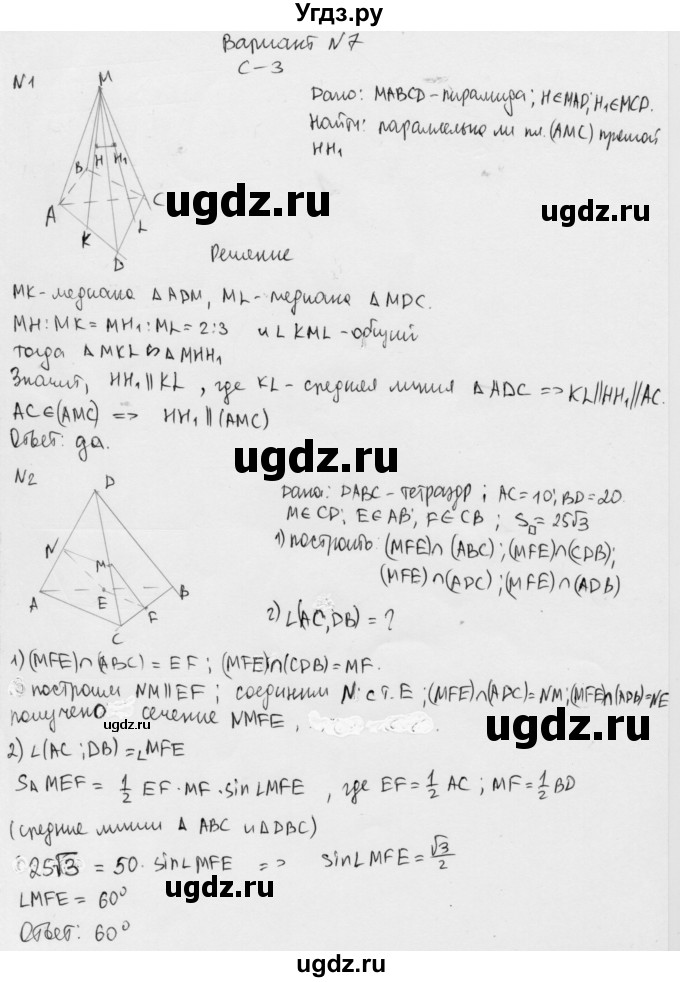 Угдз.ру
Вариант №7
С-3
№1
Дано: MABCD - пирамида; H∈MAD; H₁∈MCD.
Найти: параллельна ли пл. (AMC) прямой
HH₁
M
B H H₁
A C
K L
D
ugdz.ru
ugdz.ru
Решение
MK - медиана △ ADM, ML - медиана △ MDC.
MH : MK = MH₁ : ML = 2:3 и ∠ KML - общий
тогда △ MKL ∾ △ MHH₁
Значит, HH₁ ∥ KL, где KL - средняя линия △ ADC => KL∥HH₁∥AC.
AC∈(AMC) => HH₁ ∥ (AMC)
Ответ: да.
ugdz.ru
ugdz.ru
№2
Дано: DABC - тетраэдр; AC=10; BD=20.
M∈CD; E∈AB; F∈CB; S▱=25√3
1) построить: (MFE)∩(ABC); (MFE)∩(CDB);
(MFE)∩(ADC); (MFE)∩(ADB)
2) ∠(AC;DB) = ?
D
N
M
A E B
F
C
1) (MFE)∩(ABC) = EF; (MFE)∩(CDB)=MF.
построим NM∥EF; соединим N с т. E; (MFE)∩(ADC)=NM; (MFE)∩(ADB)=NE
получено сечение NMFE,
ugdz.ru
ugdz.ru
2) ∠(AC;DB) = ∠MFE
S△ MEF = 1/2 EF·MF·sin∠MFE, где EF=1/2 AC; MF=1/2 BD
(средние линии △ ABC и △DBC)
25√3 = 50·sin∠MFE => sin∠MFE=√3/2
∠MFE = 60°
ugdz.ru
ugdz.ru
Ответ: 60°
ugdz.ru